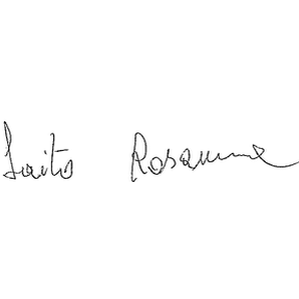 Saito Rosanna